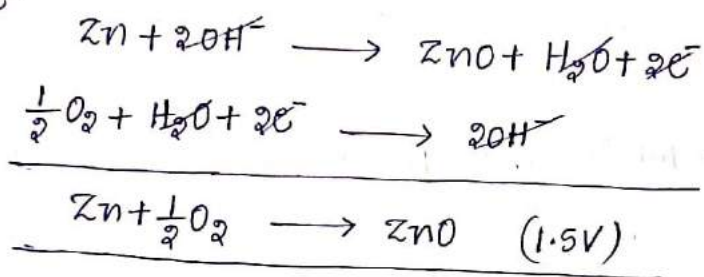 Zn + 2OH⁻ ⟶ ZnO + H₂O + 2e⁻
½O₂ + H₂O + 2e⁻ ⟶ 2OH⁻
Zn + ½O₂ ⟶ ZnO (1.5V)